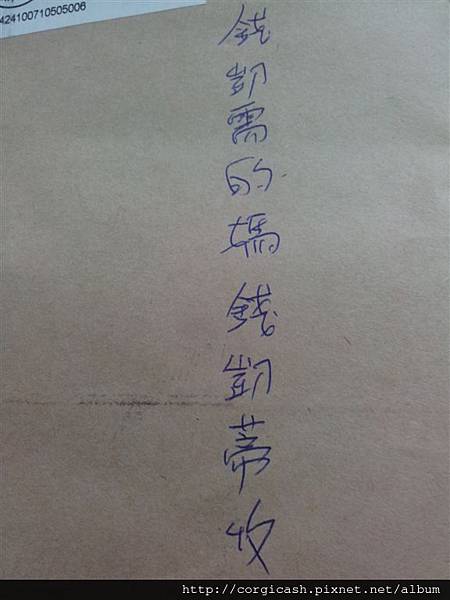 424100710505006
錢凱需的媽錢凱蒂收
http://corgicash.pixnet.net/album